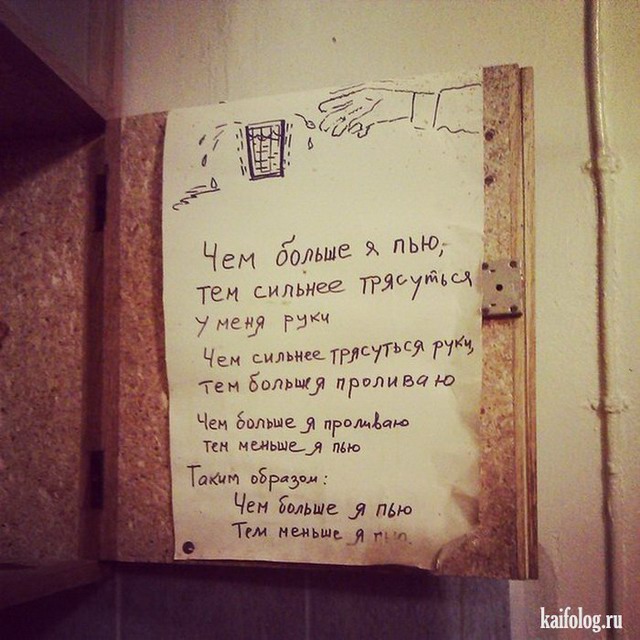 Чем больше я пью,
тем сильнее трясуться
у меня руки
Чем сильнее трясуться руки,
тем больше я проливаю
Чем больше я проливаю
тем меньше я пью
Таким образом:
Чем больше я пью
Тем меньше я пью.
kaifolog.ru